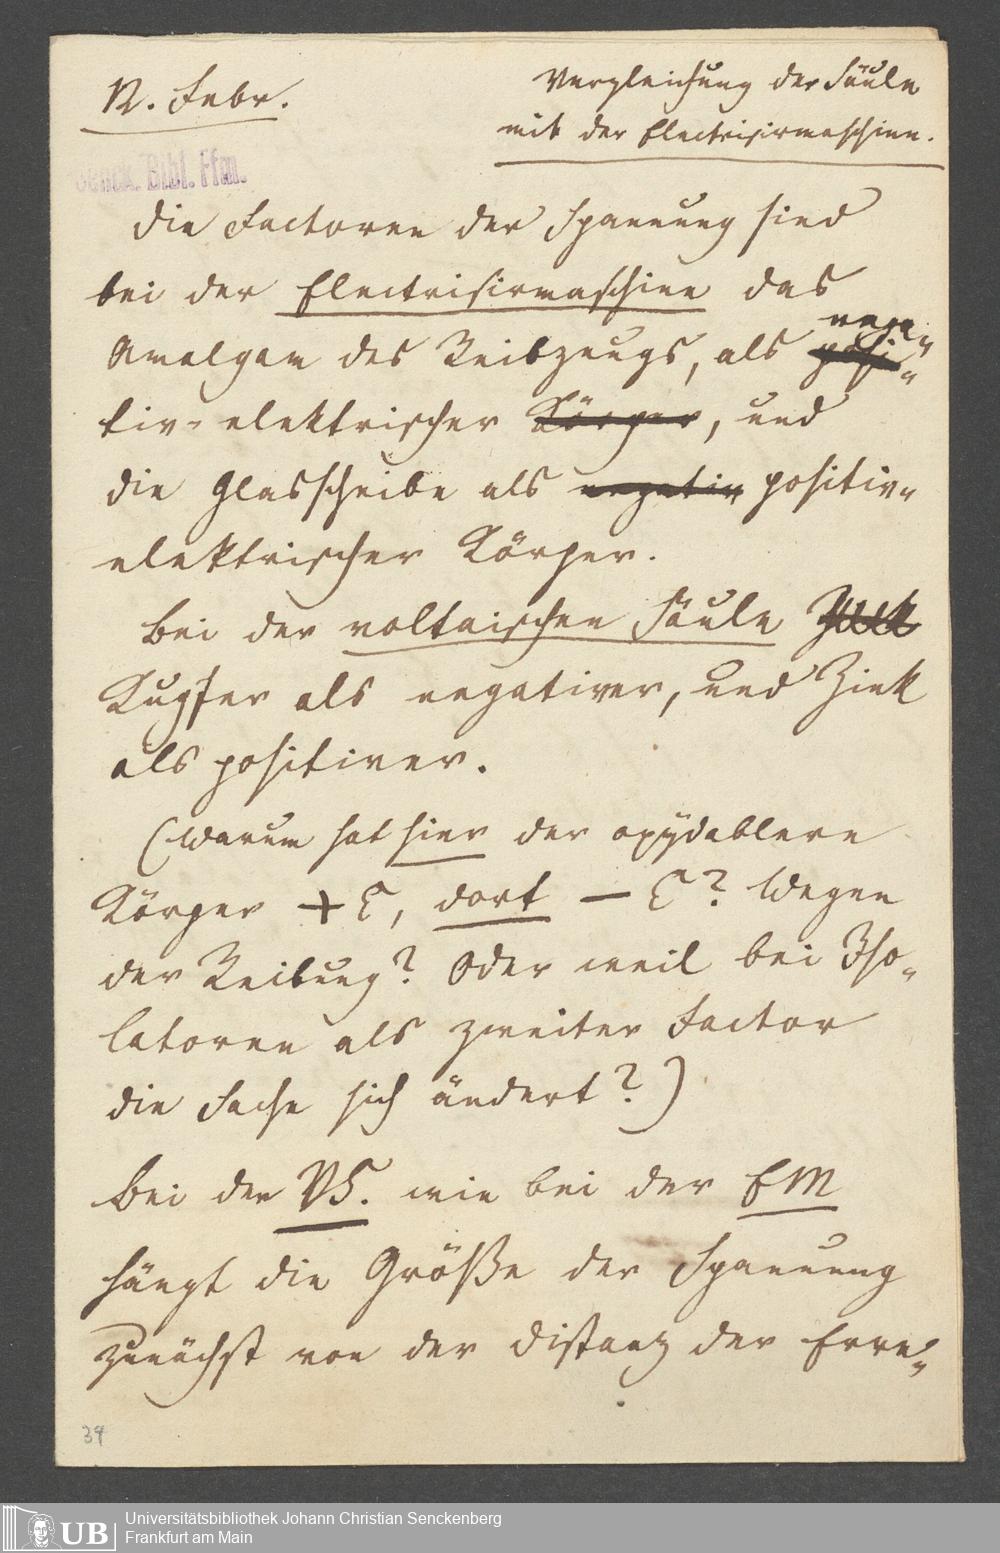 12. Febr.
Vergleichung der Säule
mit der Electrisirmaschine.
Senck. Bibl. Ffm.
Die Factoren der Spannung sind
bei der Electrisirmaschine das
Amalgam des Reibzeugs, als posi- nega-
tiv-elektrischer Körper, und
die Glasscheibe als negativ positiv-
elektrischer Körper.
Bei der voltaischen Säule Zink
Kupfer als negativer, und Zink
als positiver.
(Warum hat hier der oxydablere
Körper + E, dort — E? Wegen
der Reibung? Oder weil bei Iso-
latoren als zweiter Factor
die Sache sich ändert?)
Bei der VS. wie bei der EM
hängt die Größe der Spannung
zunächst von der Distanz der Erre-
34
UB
Universitätsbibliothek Johann Christian Senckenberg
Frankfurt am Main